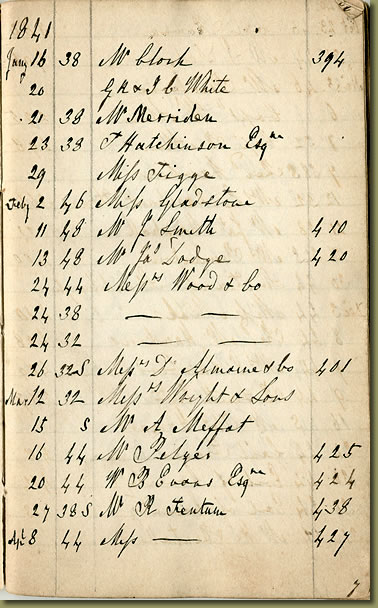 1841
Jany 16 38 Mr Closh 394
20 G H & J C White
21 38 Mr Merriden
23 38 T Hatchinson Esqre
29 Miss Figge
Feby 2 46 Miss Gladstone
11 48 Mr J Smith 410
13 48 Mr Jas Dodge 420
24 44 Messrs Wood & Co
24 38 — —
24 32 — —
26 32 S Messrs D'Almaine & Co 401
Mar 12 32 Messrs Wright & Sons
15 S Mr A Meffat
16 44 Mr Pelzer 425
20 44 W B Evans Esqre 424
27 38 S Mr R Fentum 438
Apl 8 44 Miss — 427
7